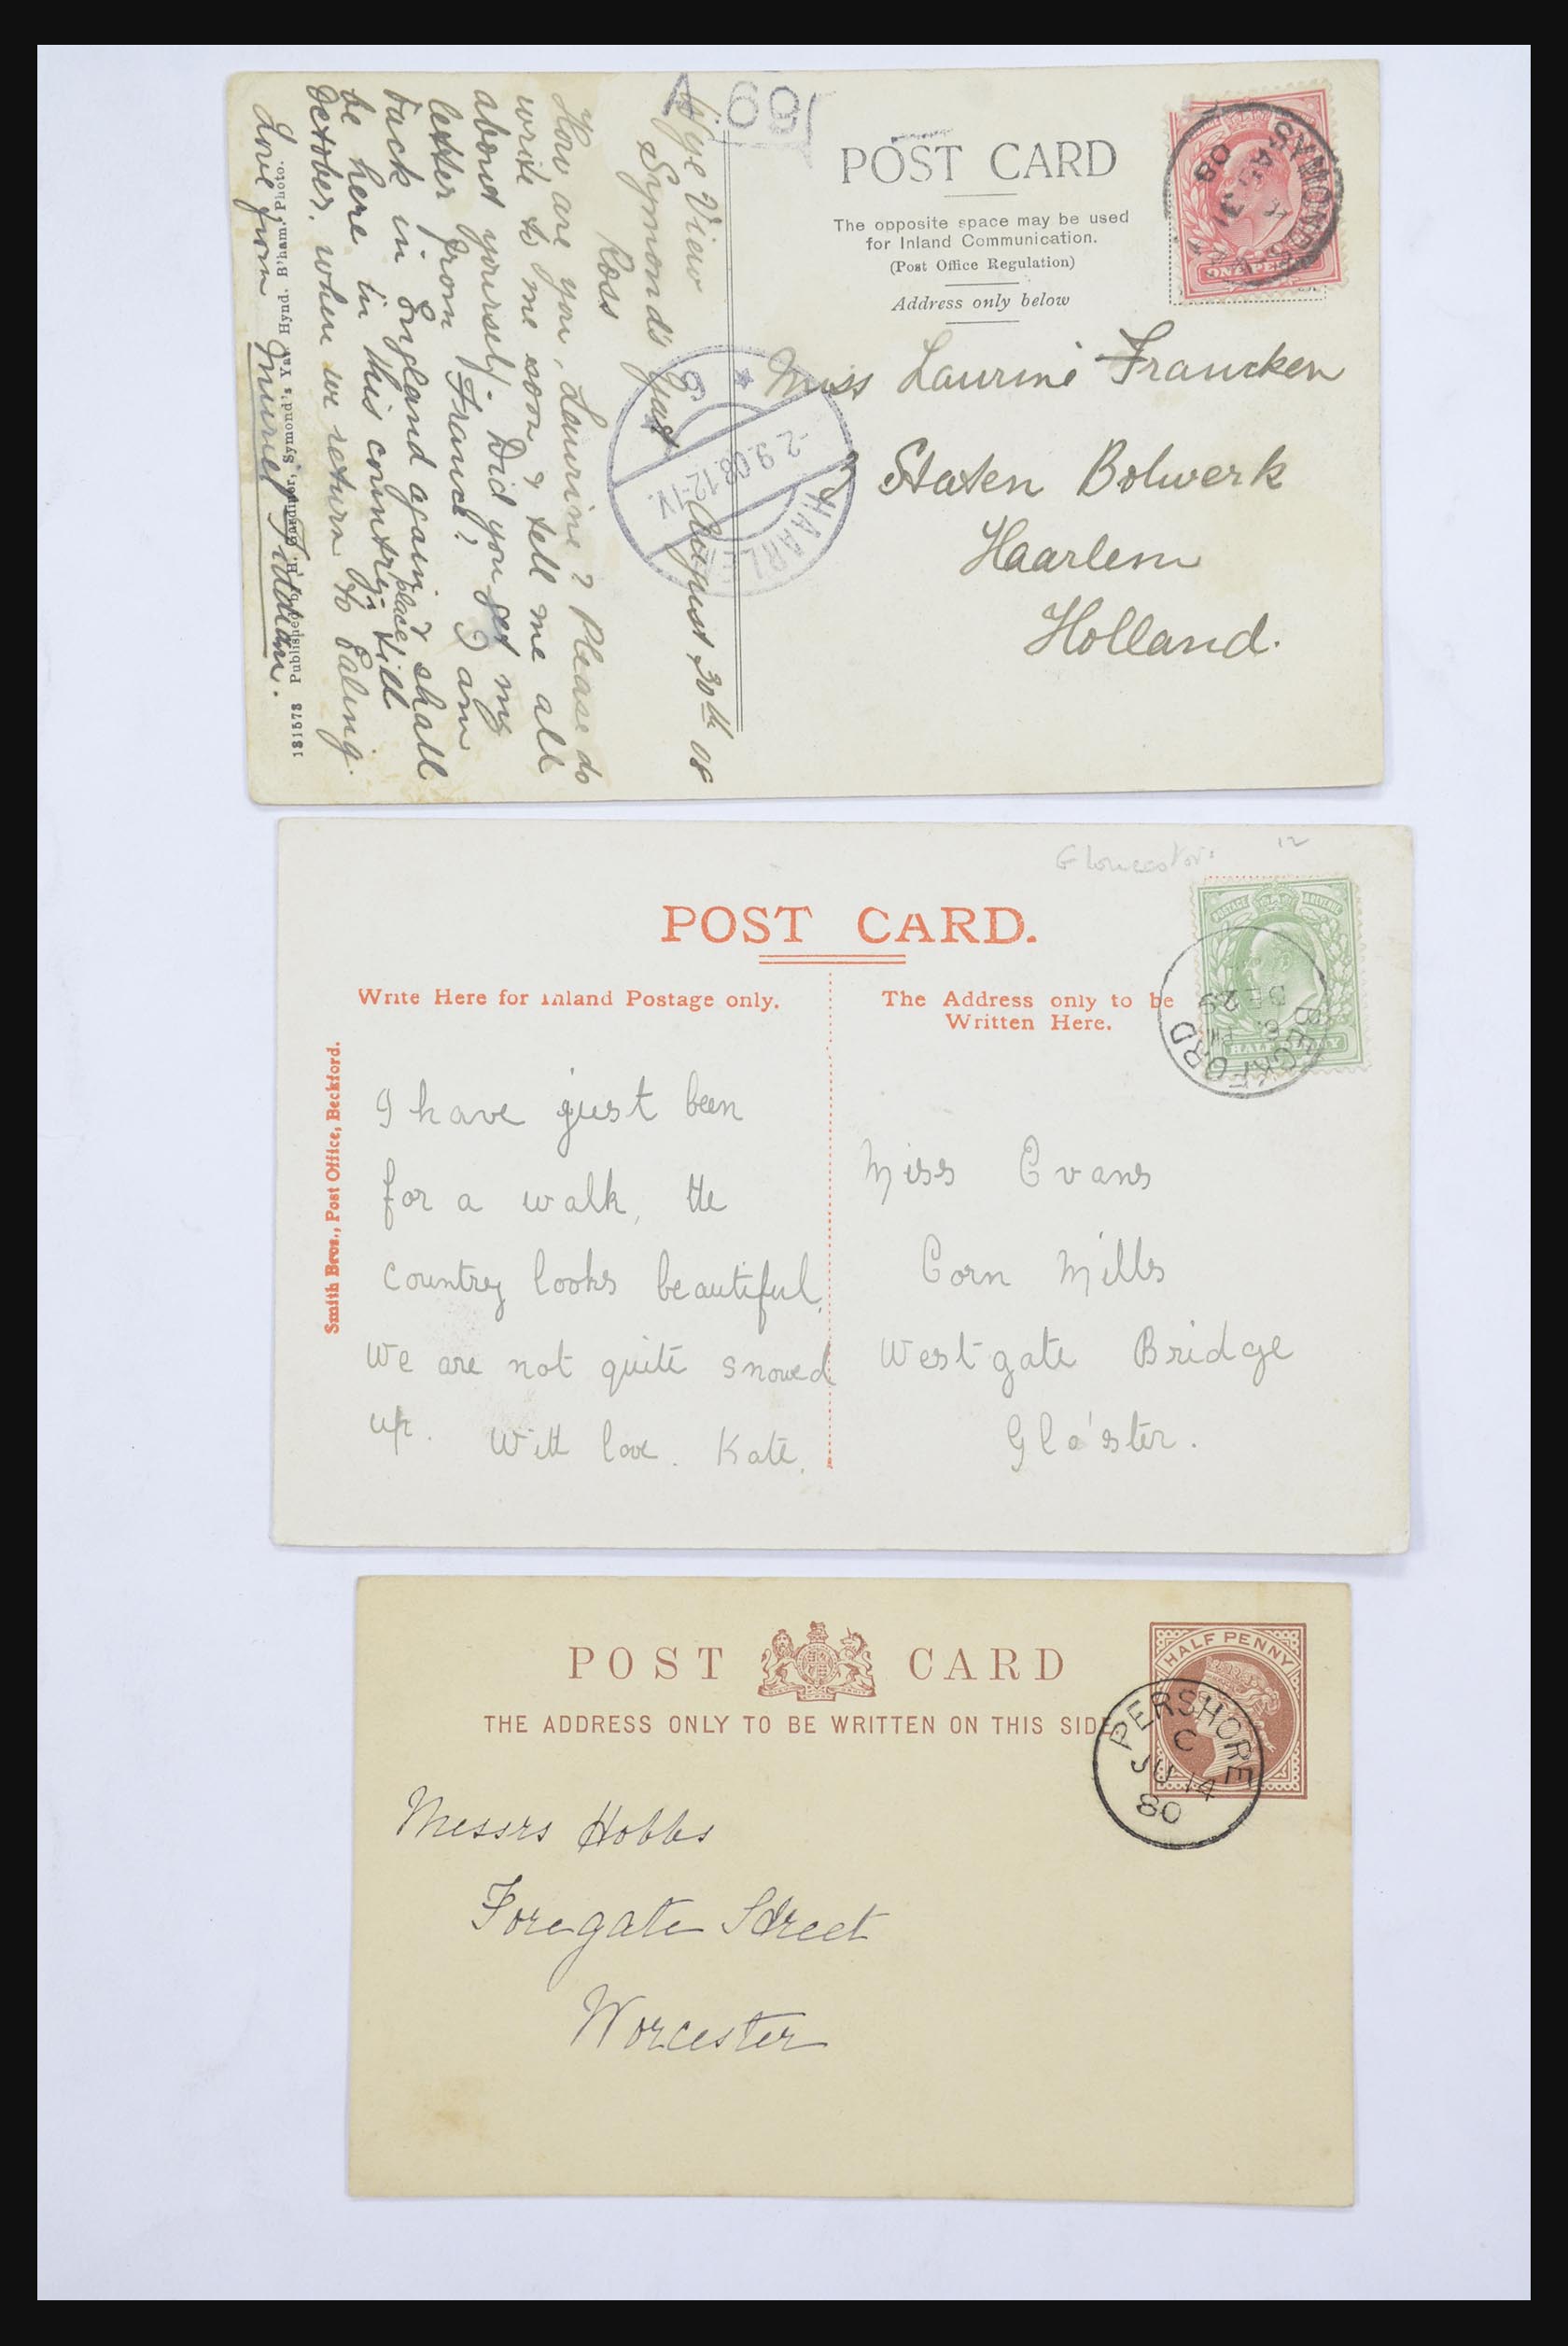 A.69
POST CARD
The opposite space may be used
for Inland Communication.
(Post Office Regulation)
Address only below
ONE PENNY
SYMONDS-YAT
AU 31
08
Miss Laurine Francken
3 Staten Bolwerk
Haarlem
Holland.
HAARLEM
-2.9.08.12-1V.
Wye View
Symond's Yat
Ross
August 30th 08
How are you, Laurine? Please do
write to me soon & tell me all
about yourself. Did you get my
letter from France? I am
back in England again & shall
be here in this country place till
October. when we return to Ealing.
Love from Muriel
181573 Published by H. Gardiner, Symond's Yat. Hynd. B'ham, Photo.
Gloucester.
12
POST CARD.
Write Here for Inland Postage only.
The Address only to be
Written Here.
POSTAGE REVENUE
HALFPENNY
BECKFORD
6. PM
DE 29
Smith Bros., Post Office, Beckford.
I have just been
for a walk, the
country looks beautiful.
We are not quite snowed
up. With love. Kate.
Miss Evans
Corn Mills
Westgate Bridge
Glo'ster.
POST CARD
THE ADDRESS ONLY TO BE WRITTEN ON THIS SIDE.
HALF PENNY
PERSHORE
C
JU 14
80
Messrs Hobbs
Foregate Street
Worcester